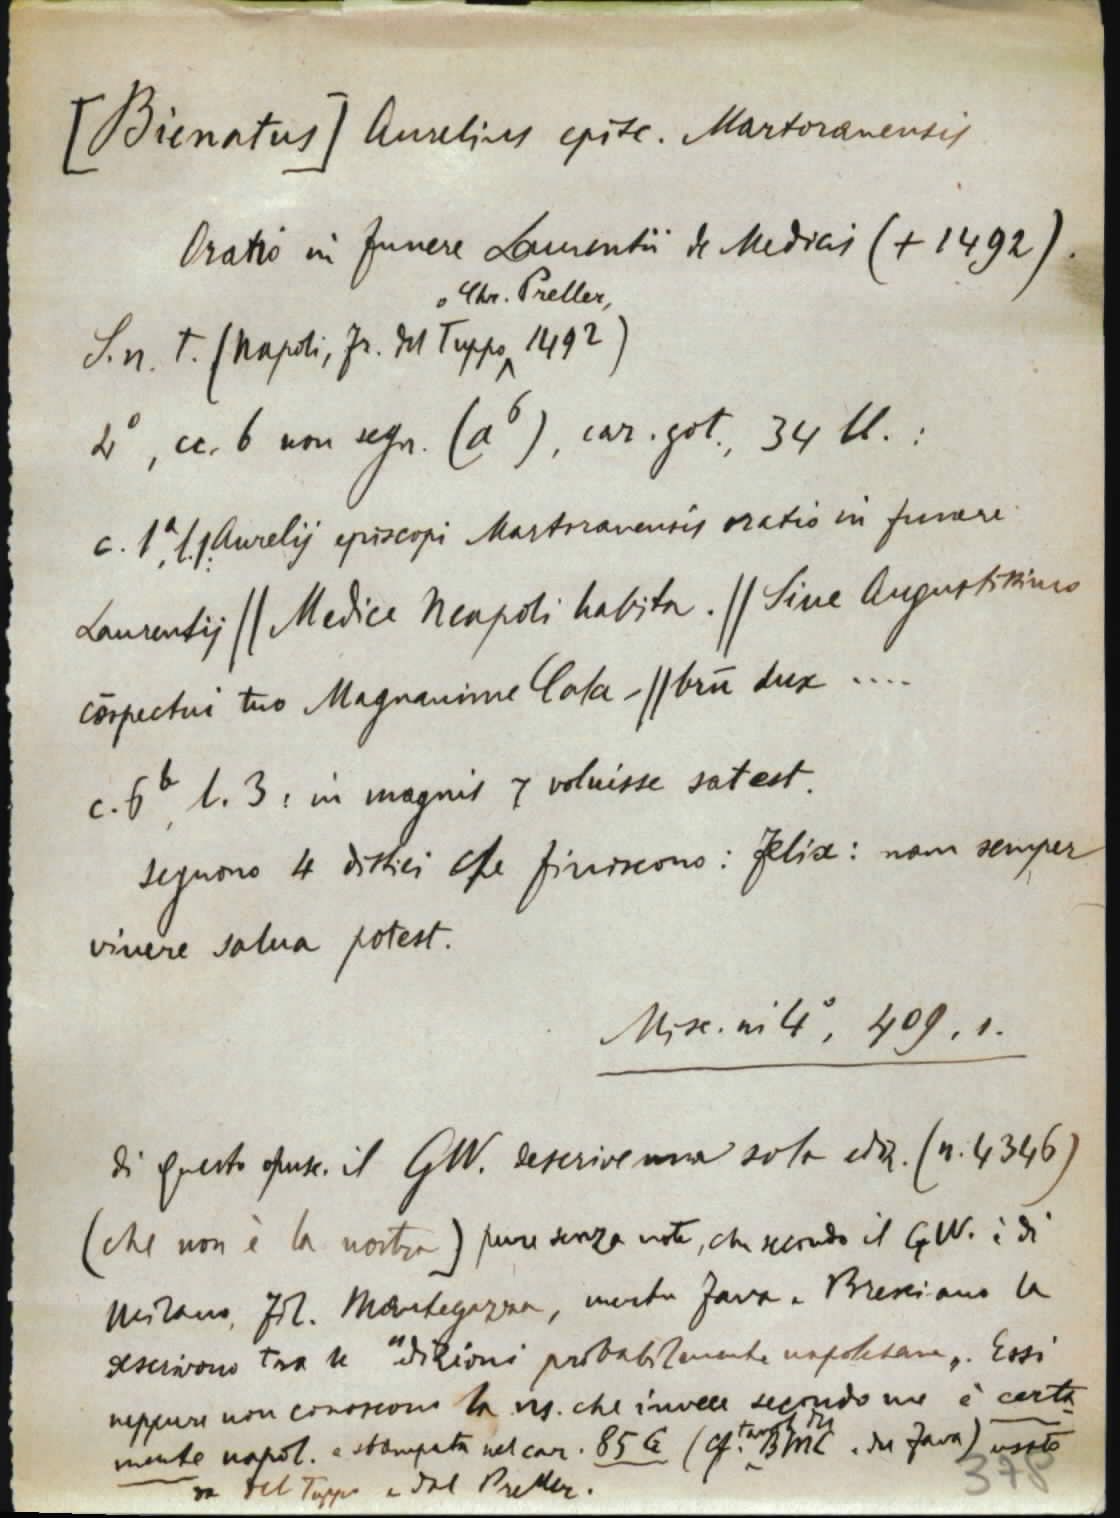 [Bienatus] Aurelius episc. Martoranensis
Oratio in funere Laurentii de Medicis (+ 1492).
o Chr. Preller,
S.n.t. (Napoli, Fr. del Tuppo 1492)
2°, cc. 6 non segn. (a⁶), car. got., 34 ll. :
c. 1ª, l.1: Aurelij episcopi Martoranensis oratio in funere
Laurentij // Medice Neapoli habita. // Sine Augustissimo
cōspectui tuo Magnanime Cala-// brū dux ....
c. 6ᵇ, l. 3: in magnis ⁊ voluisse sat est.
seguono 4 distici che finiscono: Felix: nam semper
vivere salva potest.
Misc. in 4°, 409, 1.
di questo opusc. il GW. descrive una sola ediz. (n. 4346)
(che non è la nostra) pure senza note, che secondo il GW. è di
Milano, Fil. Mantegazza, mentre Fava e Bresciano la
descrivono tra le "edizioni probabilmente napoletane". Essi
neppure non conoscono la ns. che invece secondo me è certa
mente napol. e stampata nel car. 85 G (cf. tavole del BMC e du Fava) usato
da del Tuppo e dal Preller.
378